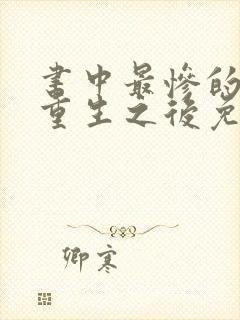 書中最慘的
重生之後免
卿寒